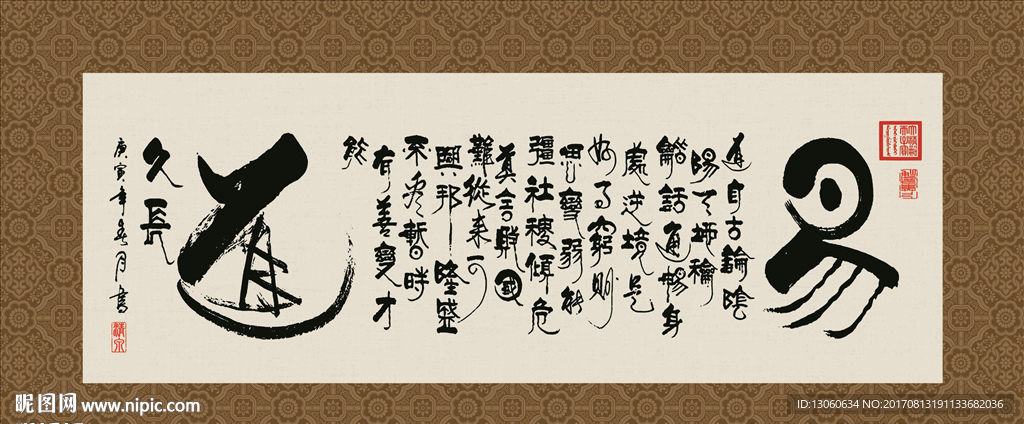 易
道自古論陰
陽天地
話通暢身
處逆境是
好事窮則
思變弱能
彊社稷傾危
莫言敗國
難從來可
興邦隆盛
不暫時
有善變才
能
道
久長
庚寅年春月書
昵图网 www.nipic.com
ID:13060634 NO:20170813191133682036